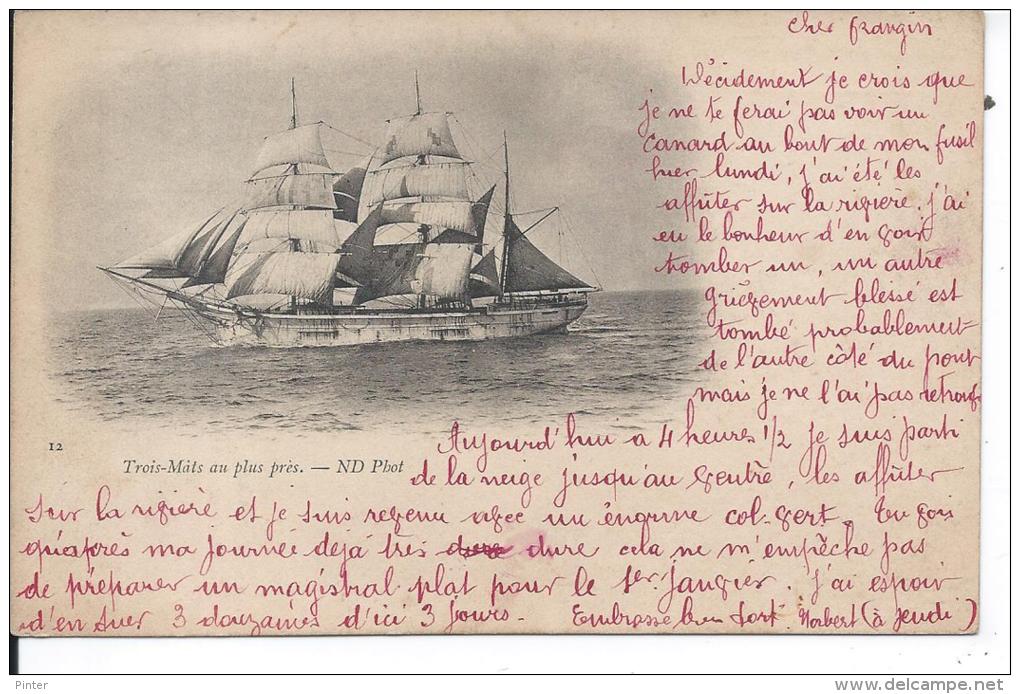 Cher frangin
Décidement je crois que
je ne te ferai pas voir un
canard au bout de mon fusil
hier lundi, j'ai été les
affûter sur la rivière. j'ai
eu le bonheur d'en voir
tomber un, un autre
grièvement blessé est
tombé probablement
de l'autre côté du pont
mais je ne l'ai pas retrouvé
Aujourd'hui a 4 heures 1/2 je suis parti
de la neige jusqu'au ventre, les affûter
12
Trois-Mâts au plus près. — ND Phot
sur la rivière et je suis revenu avec un énorme col-vert. Tu vois
qu'après ma journée déjà très dure cela ne m'empêche pas
de préparer un magistral plat pour le 1er Janvier. J'ai espoir
d'en tuer 3 douzaines d'ici 3 jours. Embrasse bien fort Norbert (à jeudi)
Pinter
www.delcampe.net